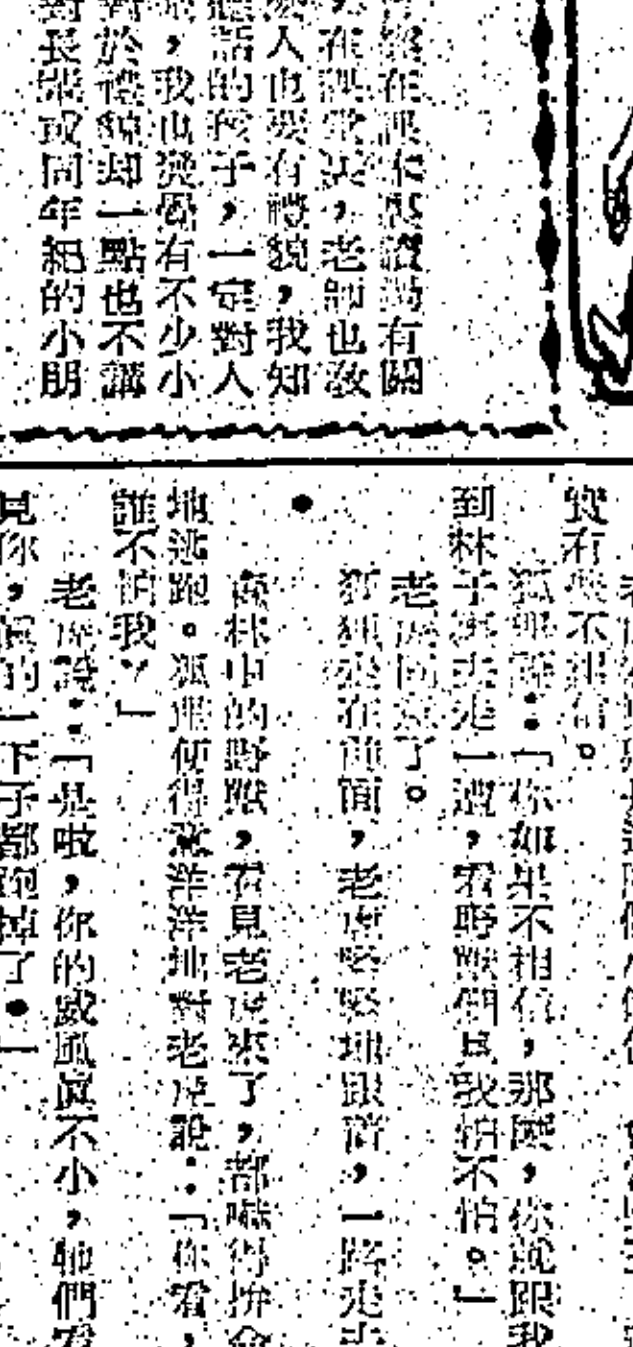 在課本裏讀過有關
在課堂裏,老師也教
人也要有禮貌,我知
話的孩子,一定對人
,我也發覺有不少小
對於禮貌却一點也不講
對長輩或同年紀的小朋
實有些不相信。
狐狸說:「你如果不相信,那麼,你就跟我
到林子裏去走一遭,看野獸們見我怕不怕。」
老虎同意了。
狐狸走在前面,老虎緊緊地跟着,一路走去
森林中的野獸,看見老虎來了,都嚇得拚命
地逃跑。狐狸便得意洋洋地對老虎說:「你看,
誰不怕我?」
老虎說:「是啦,你的威風眞不小,牠們看
見你,眞的一下子都跑掉了。」